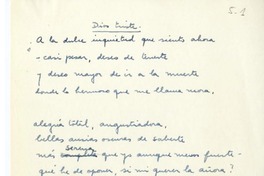 5.1
Dios triste.
A la dulce inquietud que siento ahora
- casi pesar, deseo de tenerte
y deseo mayor de ir a la muerte
donde lo hermoso que me llama mora.
alegría útil, angustiadora,
bellas ansias oscuras de saberte
serena
más completa que yo aunque menos fuerte-
qué he de oponer, si mi querer la añora?